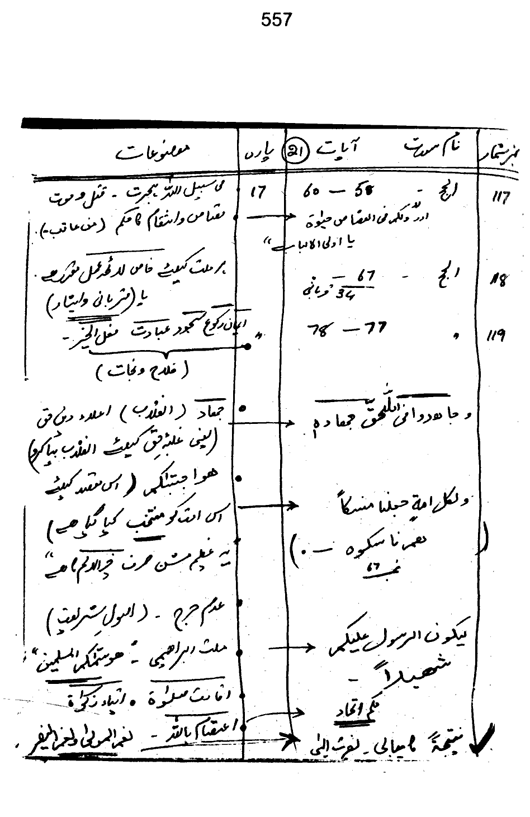 557
نمبر شمار نام سورت آیات (21) پارہ موضوعات
117 الحج - 58 — 60 17 فی سبیل اللہ ہجرت - قتل و موت
اور ولکم فی القصاص حیوۃ قصاص و انتقام کا حکم (من عاقب)
یا اولی الالباب"
118 الحج - 67 — ہر ملت کیلئے خاص لائحہ عمل مقرر ہے
34 قربانی یا (قربانی و ایثار)
119 " 77 — 78 " ایمان رکوع سجود عبادت فعل الخیر -
(فلاح و نجات)
وجاهدوا فی اللہ حق جهادہ جهاد (انقلاب) اعلاء دین حق
(یعنی غلبہ حق کیلئے انقلاب بپا کرو)
ھو اجتبٰکم (اس مقصد کیلئے
ولکل امة جعلنا منسکاً اس امت کو منتخب کیا گیا ہے)
(ھم ناسکوہ — 67) یہ عظیم مشن صرف ہے"
عدم حرج - (اصول شریعت)
لیکون الرسول علیکم ملت ابراھیمی - "ھو سمٰکم المسلمین"
شھیداً - اقامت صلوٰۃ • ایتاء زکوٰۃ
حکم اتحاد اعتصام باللہ - نعم المولیٰ و نعم النصیر
نتیجۃً کامیابی - نصرت الٰہی